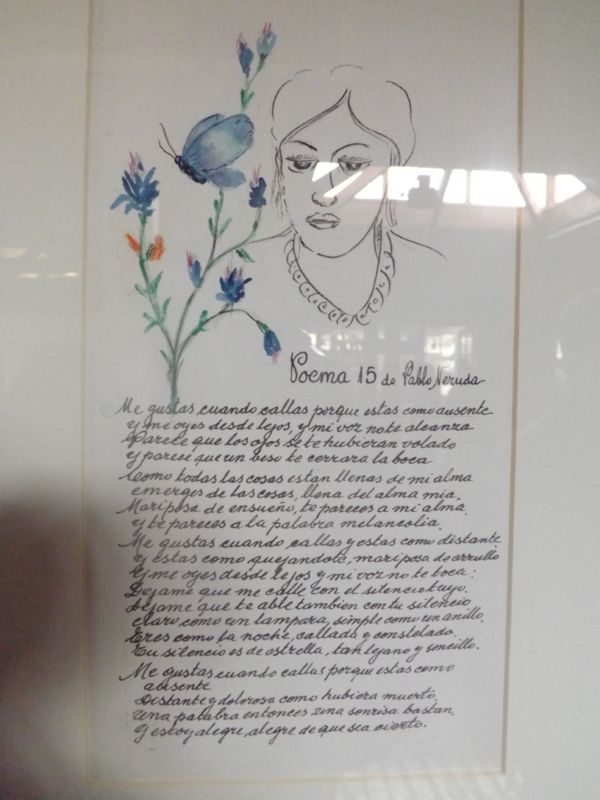 Poema 15 de Pablo Neruda
Me gustas cuando callas porque estas como ausente
y me oyes desde lejos, y mi voz no te alcanza
Parece que los ojos se te hubieran volado
y parece que un beso te cerrara la boca
Como todas las cosas estan llenas de mi alma
emerges de las cosas, llena del alma mia.
Mariposa de ensueño, te pareces a mi alma,
y te pareces a la palabra melancolia.
Me gustas cuando callas y estas como distante
y estas como quejandote, mariposa de arrullo
Y me oyes desde lejos y mi voz no te toca:
Dejame que me calle con el silencio tuyo.
Dejame que te able tambien con tu silencio
claro como un lampara, simple como un anillo.
Eres como la noche, callada y constelada.
Tu silencio es de estrella, tan lejano y sencillo.
Me gustas cuando callas porque estas como
ausente
Distante y dolorosa como hubiera muerto,
Una palabra entonces una sonrisa bastan.
y estoy alegre, alegre de que sea cierto.